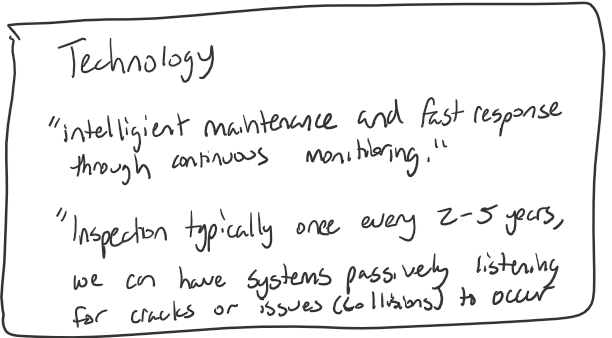 Technology
"intelligient maintenance and fast response
through continuous monitoring."
"Inspection typically once every 2-5 years,
we can have systems passively listening
for cracks or issues (collisions) to occur